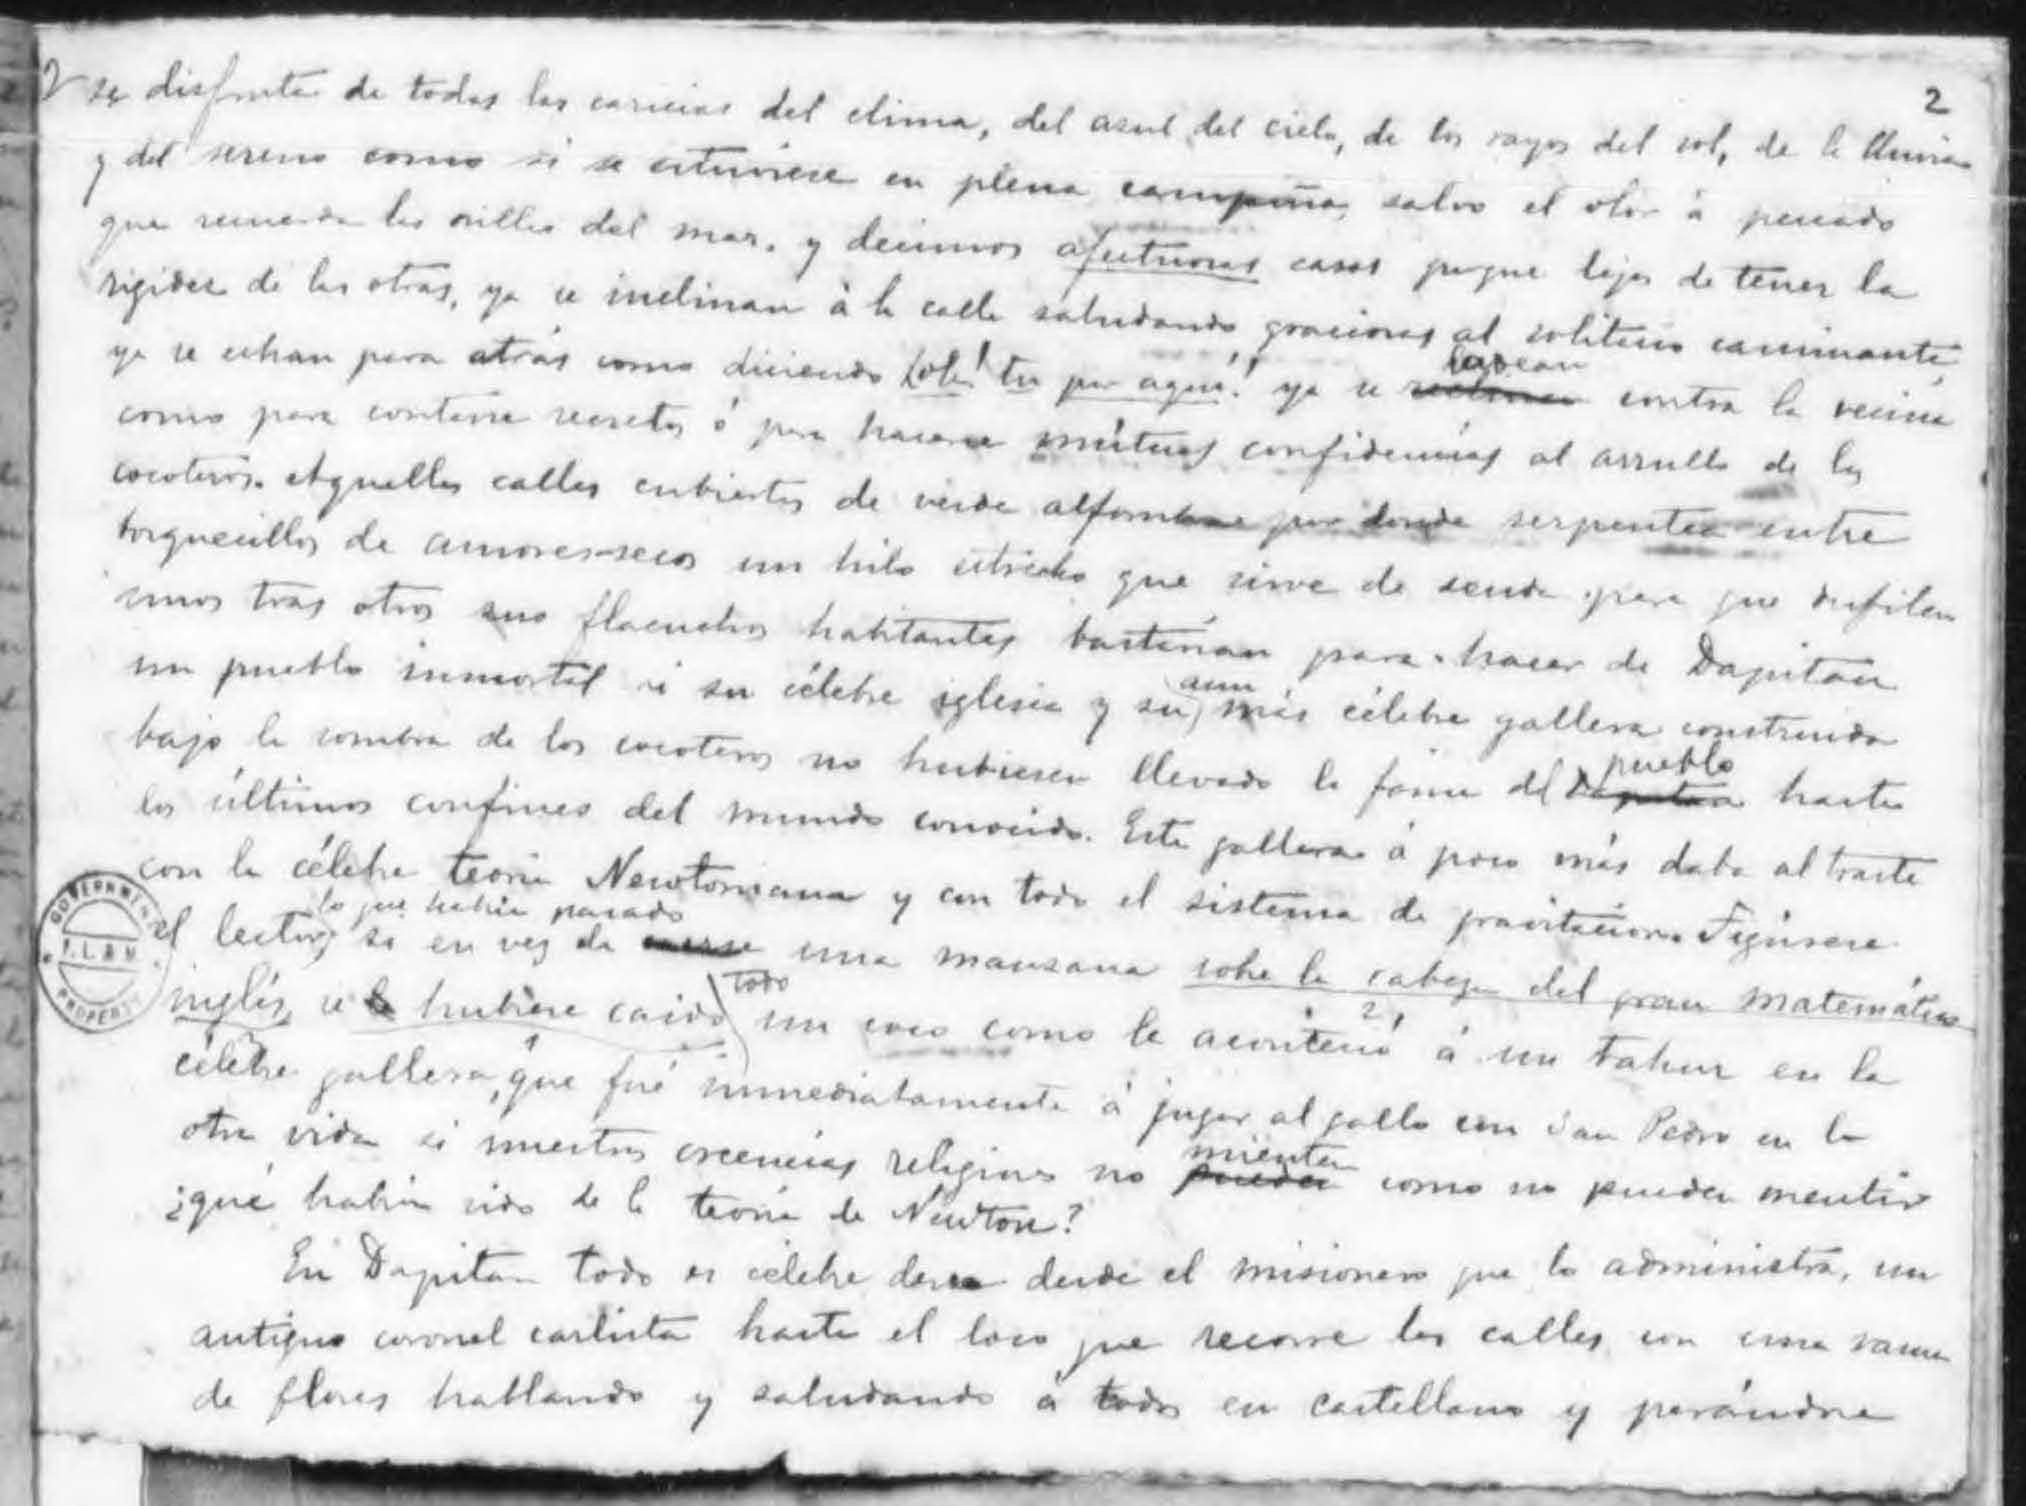 2
se disfruta de todas las caricias del clima, del azul del cielo, de los rayos del sol, de la lluvia
y del sereno como si se estuviese en plena campiña, salvo el olor á pescado
que recuerda las orillas del mar. y decimos afectuosas casas porque lejos de tener la
rigidez de las otras, ya se inclinan á la calle saludando graciosas al solitario caminante,
ya se echan para atrás como diciendo hole! tu por aquí! ya se ladean contra la vecina
como para contarse secretos ó para hacerse mútuas confidencias al arrullo de los
cocoteros. Aquellas calles cubiertas de verde alfombra por donde serpentea entre
bosquecillos de amores-secos un hilo estrecho que sirve de senda para que desfilen
unos tras otros sus flacuchos habitantes bastarían para hacer de Dapitan
un pueblo inmortal si su célebre iglesia y su aun más célebre gallera construida
bajo la sombra de los cocoteros no hubiesen llevado la fama del pueblo hasta
los últimos confines del mundo conocido. Esta gallera á poco más daba al traste
con la célebre teoría Newtoniana y con todo el sistema de gravitación. Figúrese
el lector lo que habría pasado si en vez de una manzana sobre la cabeza del gran matemático
inglés, se hubiese caido todo un coco como le aconteció á un tahur en la
célebre gallera, que fué inmediatamente á jugar al gallo con San Pedro en la
otra vida si nuestras creencias religiosas no mienten como no pueden mentir
¿qué habría sido de la teoría de Newton?
En Dapitan todo es célebre desde el misionero que lo administra, un
antiguo coronel carlista hasta el loco que recorre las calles con una rama
de flores hablando y saludando á todos en castellano y parándose
GOVERNMENT
PROPERTY